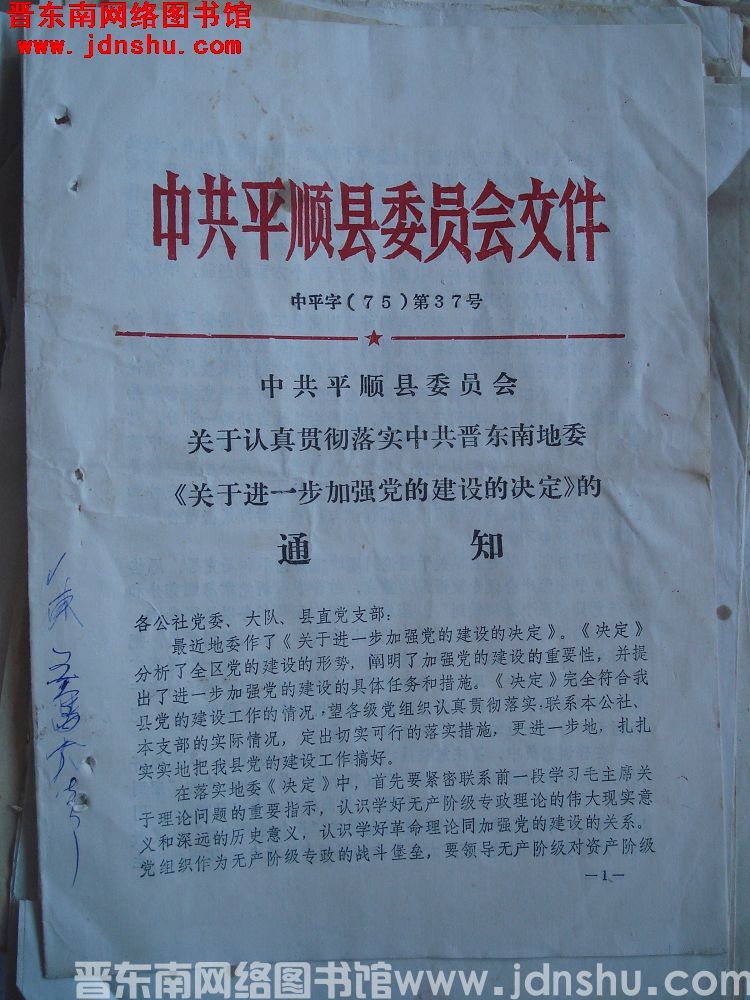 晋东南网络图书馆
www.jdnshu.com
中共平顺县委员会文件
中平字(75)第37号
中共平顺县委员会
关于认真贯彻落实中共晋东南地委
《关于进一步加强党的建设的决定》的
通 知
各公社党委、大队、县直党支部:
最近地委作了《关于进一步加强党的建设的决定》。《决定》
分析了全区党的建设的形势,阐明了加强党的建设的重要性,并提
出了进一步加强党的建设的具体任务和措施。《决定》完全符合我
县党的建设工作的情况,望各级党组织认真贯彻落实,联系本公社、
本支部的实际情况,定出切实可行的落实措施,更进一步地,扎扎
实实地把我县党的建设工作搞好。
在落实地委《决定》中,首先要紧密联系前一段学习毛主席关
于理论问题的重要指示,认识学好无产阶级专政理论的伟大现实意
义和深远的历史意义,认识学好革命理论同加强党的建设的关系。
党组织作为无产阶级专政的战斗堡垒,要领导无产阶级对资产阶级
—1—
晋东南网络图书馆www.jdnshu.com